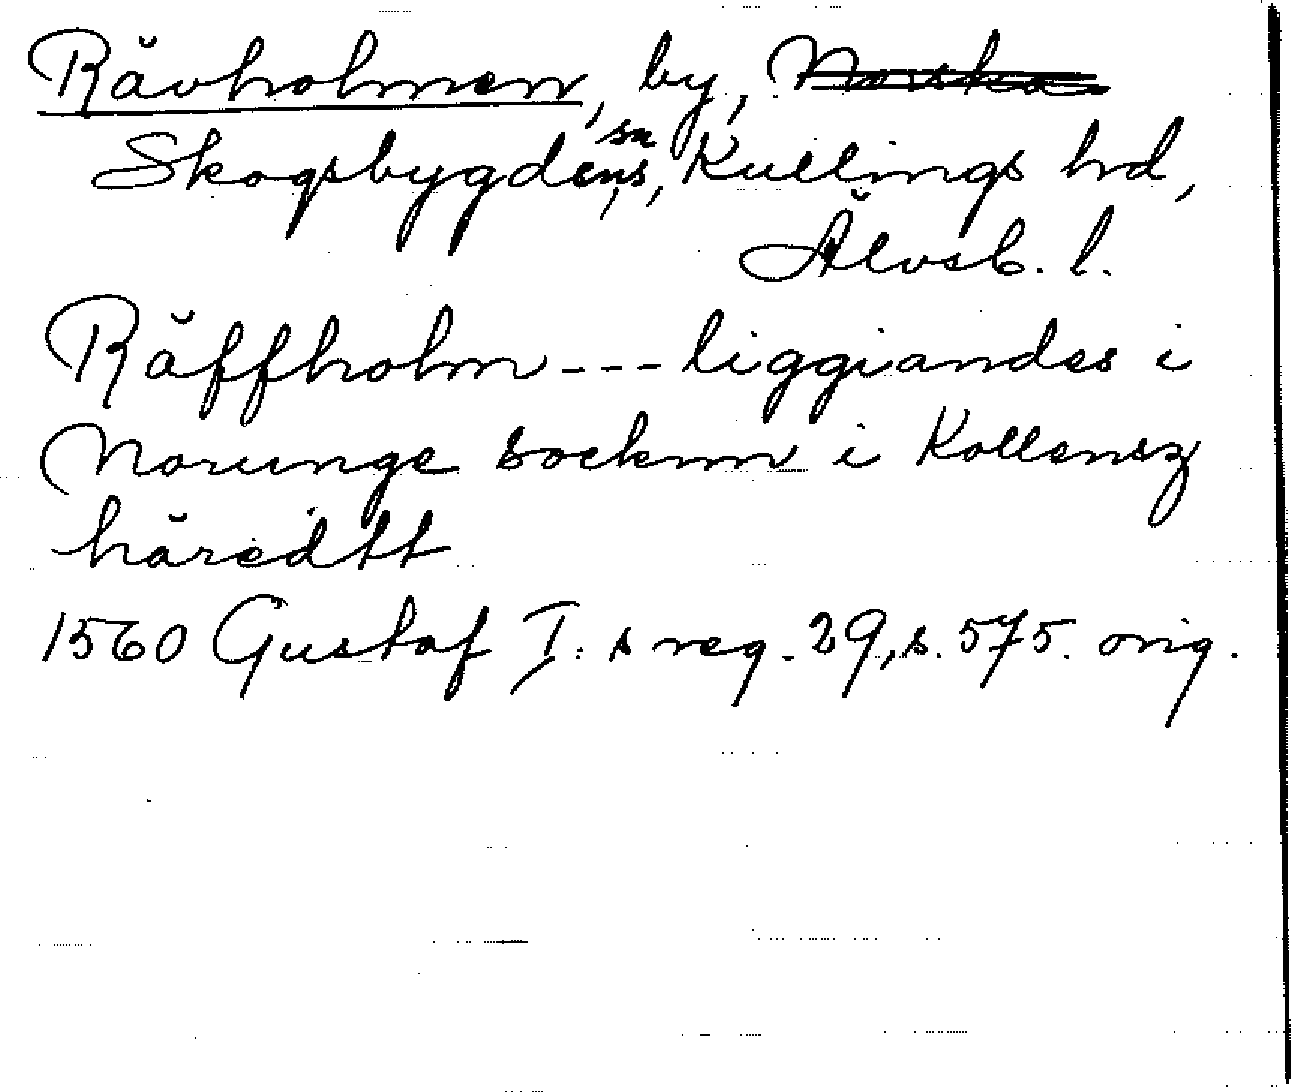 Rävholmen, by,
Skogsbygdens, sn Kullings hd,
Älvsb. l.
Räffholm --- liggiandes i
Norunge socknn i Kollensz
häredtt
1560 Gustaf I:s reg. 29, s. 575. orig.